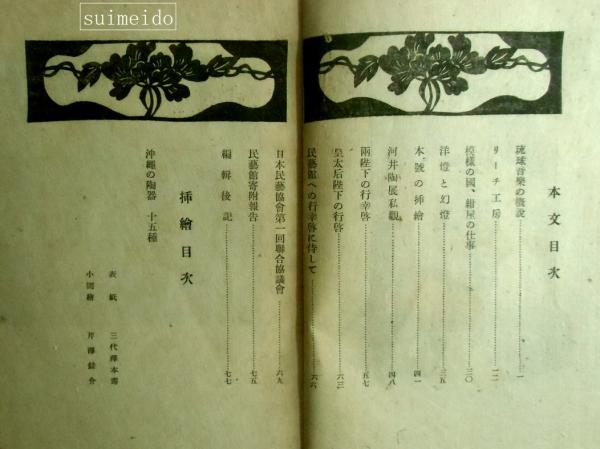 suimeido
本文目次
琉球音樂の檢說………一
リーチ工房………一二
模樣の國、紺屋の仕事………三〇
洋燈と幻燈………三五
本號の挿繪………四一
河井陶展私觀………四八
兩陛下の行幸啓………五七
皇太后陛下の行啓………六三
民藝館への行幸啓に侍して………六六
日本民藝協會第一回聯合協議會………六九
民藝館寄附報告………七五
編輯後記………七七
挿繪目次
沖繩の陶器 十五種
表紙 三代澤本壽
小間繪 芹澤銈介